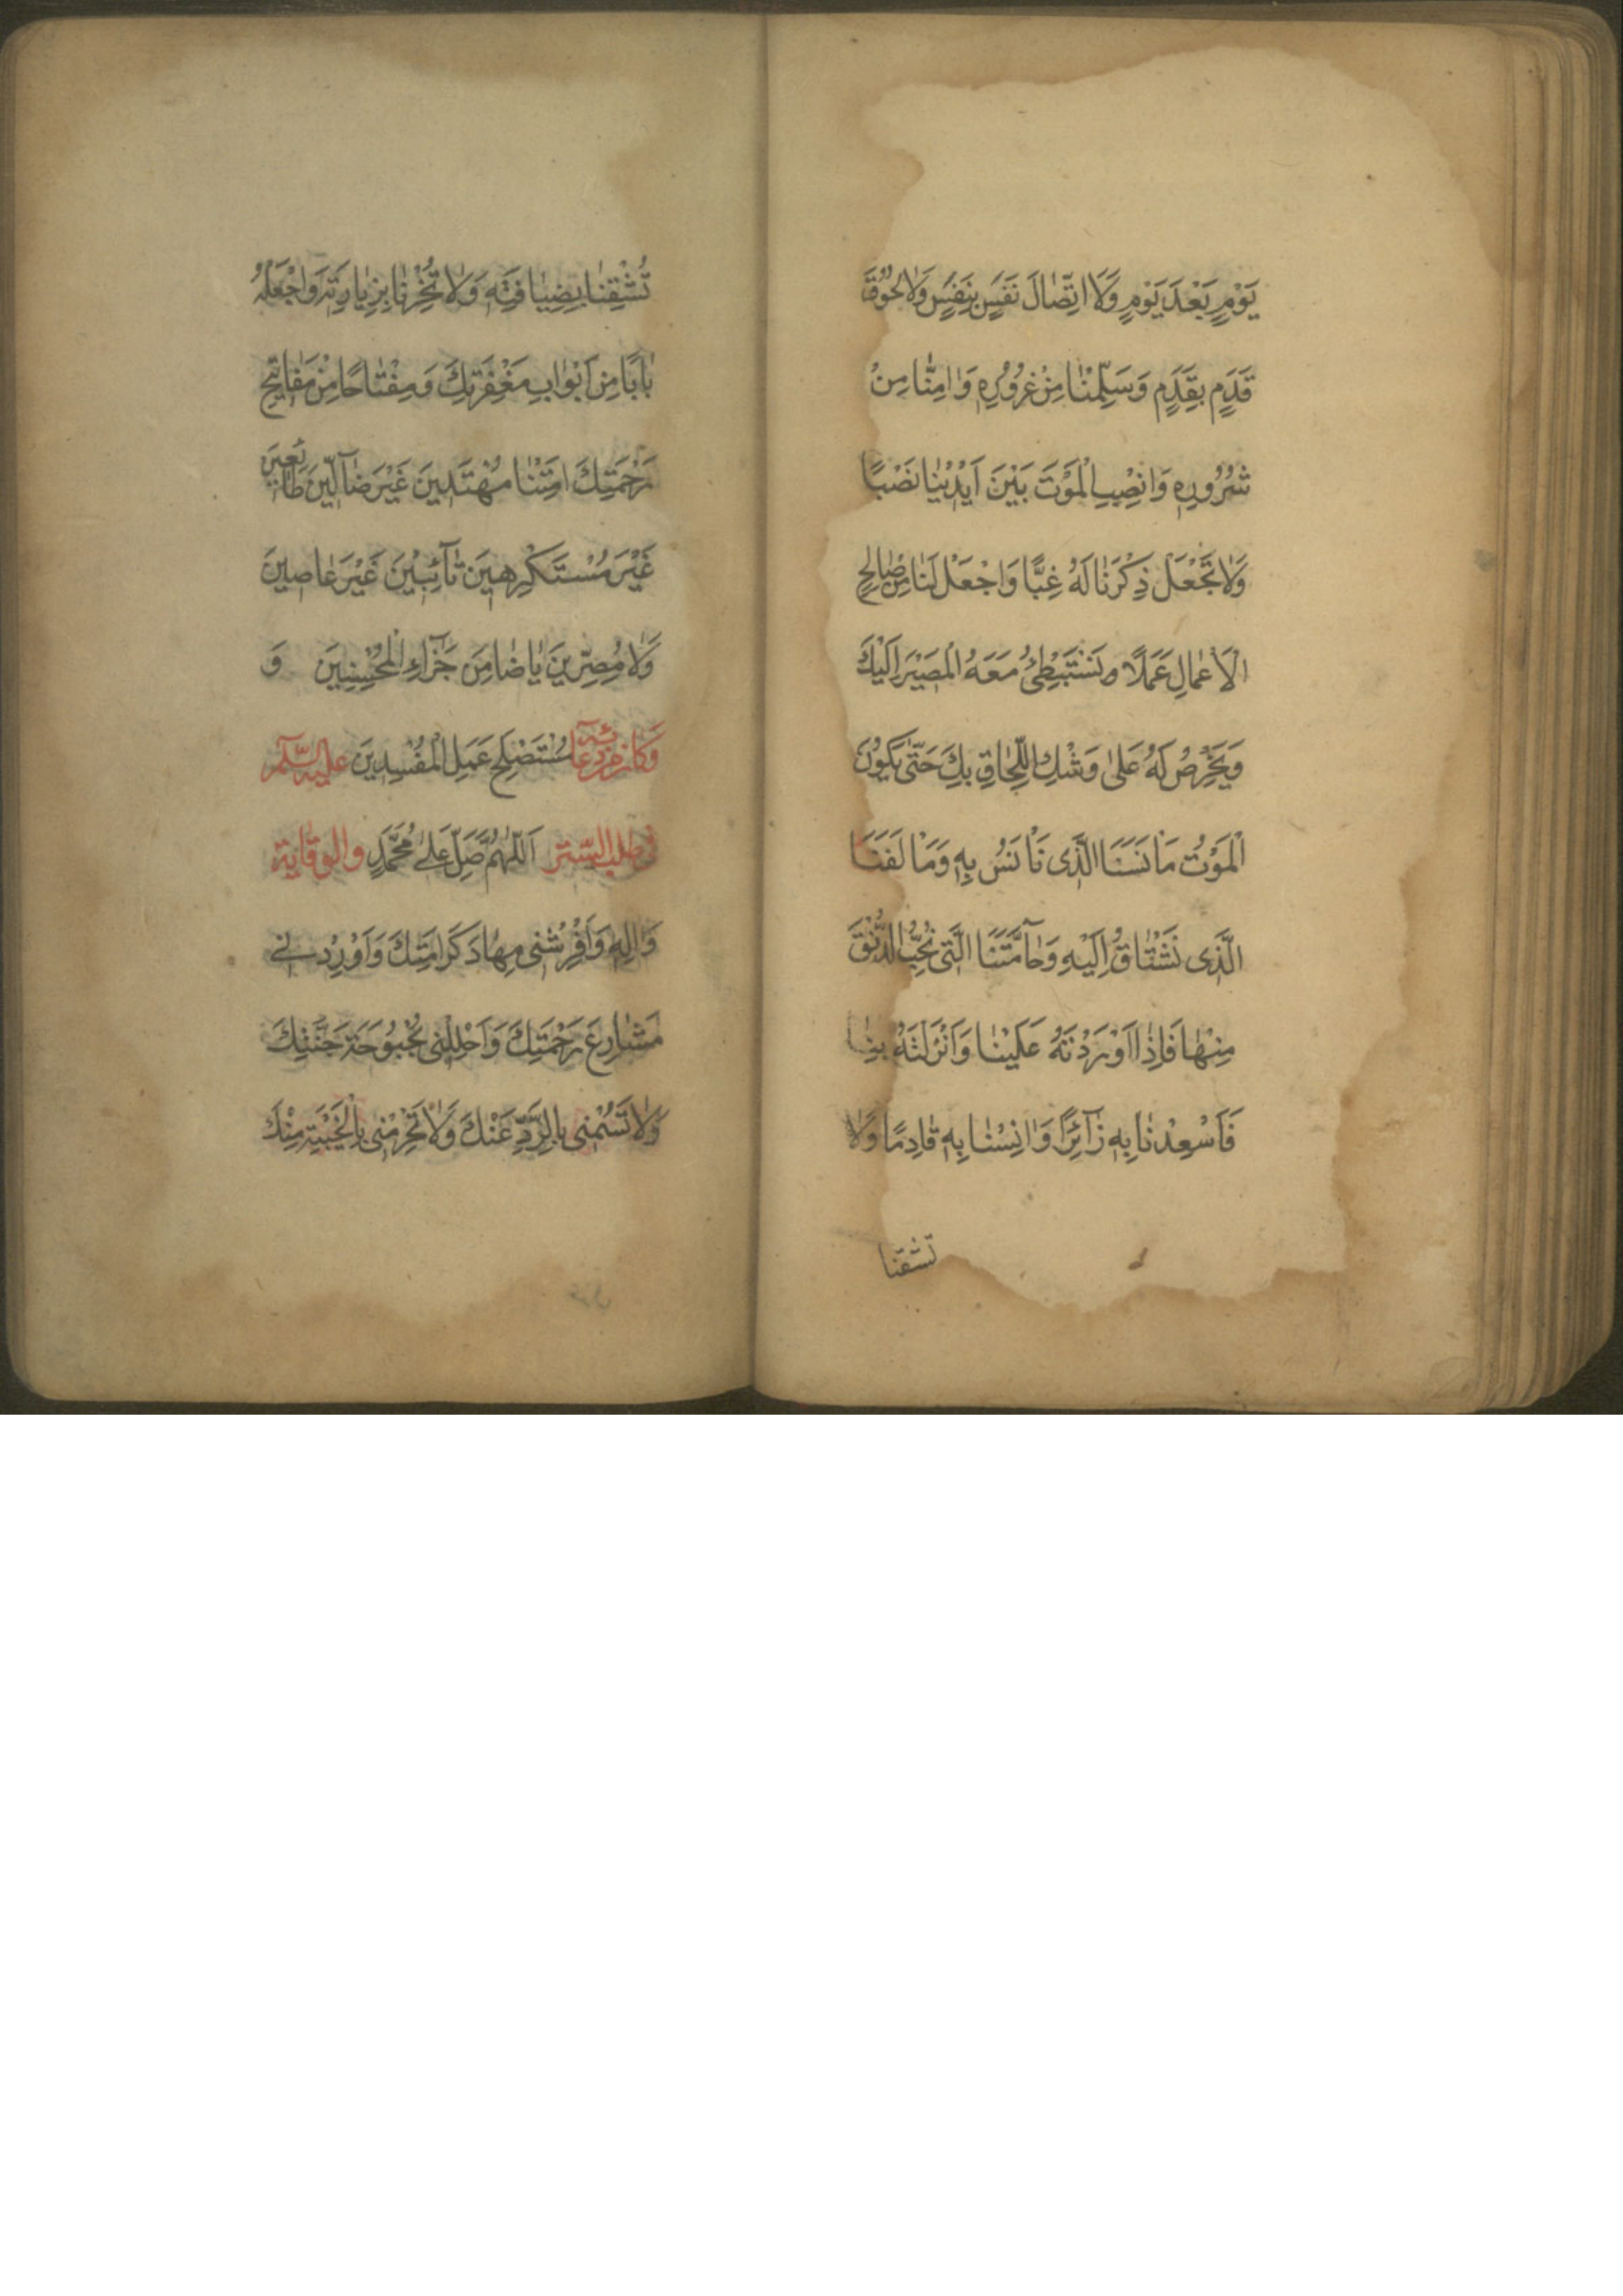 يَوْمٍ بَعْدَ يَوْمٍ وَلَا اتِّصَالَ نَفَسٍ بِنَفَسٍ وَلَا لُحُوْقَ
قَدَمٍ بِقَدَمٍ وَسَلِّمْنَا مِنْ غُرُوْرِهِ وَامِنَّا مِنْ
شُرُوْرِهِ وَانْصِبِ الْمَوْتَ بَيْنَ اَيْدِيْنَا نَصْبًا
وَلَا تَجْعَلْ ذِكْرَنَا لَهُ غِبًّا وَاجْعَلْ لَنَا مِنْ صَالِحِ
الْاَعْمَالِ عَمَلًا وَنَسْتَبْطِئُ مَعَهُ الْمَصِيْرَ اِلَيْكَ
وَيَحْرِصُ لَهُ عَلٰى وَشْكِ اللِّحَاقِ بِكَ حَتّٰى يَكُوْنَ
الْمَوْتُ مَاْنَسَنَا الَّذِى نَاْنَسُ بِهِ وَمَاْلَفَنَا
الَّذِى نَشْتَاقُ اِلَيْهِ وَحَآمَّتَنَا الَّتِى نُحِبُّ الدُّنُوَّ
مِنْهَا فَاِذَا اَوْرَدْتَهُ عَلَيْنَا وَاَنْزَلْتَهُ بِنَا
فَاَسْعِدْنَا بِهِ زَآئِرًا وَانِسْنَا بِهِ قَادِمًا وَلَا
تشقنا
تُشْقِنَا بِضِيَافَتِهِ وَلَا تُخْزِنَا بِزِيَارَتِهِ وَاجْعَلْهُ
بَابًا مِنْ اَبْوَابِ مَغْفِرَتِكَ وَمِفْتَاحًا مِنْ مَفَاتِيْحِ
رَحْمَتِكَ اَمِتْنَا مُهْتَدِيْنَ غَيْرَ ضَآلِّيْنَ طَائِعِيْنَ
غَيْرَ مُسْتَكْرِهِيْنَ تَآئِبِيْنَ غَيْرَ عَاصِيْنَ
وَلَا مُصِرِّيْنَ يَا ضَامِنَ جَزَآءِ الْمُحْسِنِيْنَ وَ
وَكَانَ مِنْ دُعَآئِهِ مُسْتَصْلِحَ عَمَلِ الْمُفْسِدِيْنَ عليه السّلٰم
فى طلب الستر اَللّٰهُمَّ صَلِّ عَلٰى مُحَمَّدٍ والوقاية
وَالِهِ وَاَفْرِشْنِى مِهَادَ كَرَامَتِكَ وَاَوْرِدْنِى
مَشَارِعَ رَحْمَتِكَ وَاَحْلِلْنِى بُحْبُوْحَةَ جَنَّتِكَ
وَلَا تَسُمْنِى بِالرَّدِّ عَنْكَ وَلَا تَحْرِمْنِى بِالْخَيْبَةِ مِنْكَ